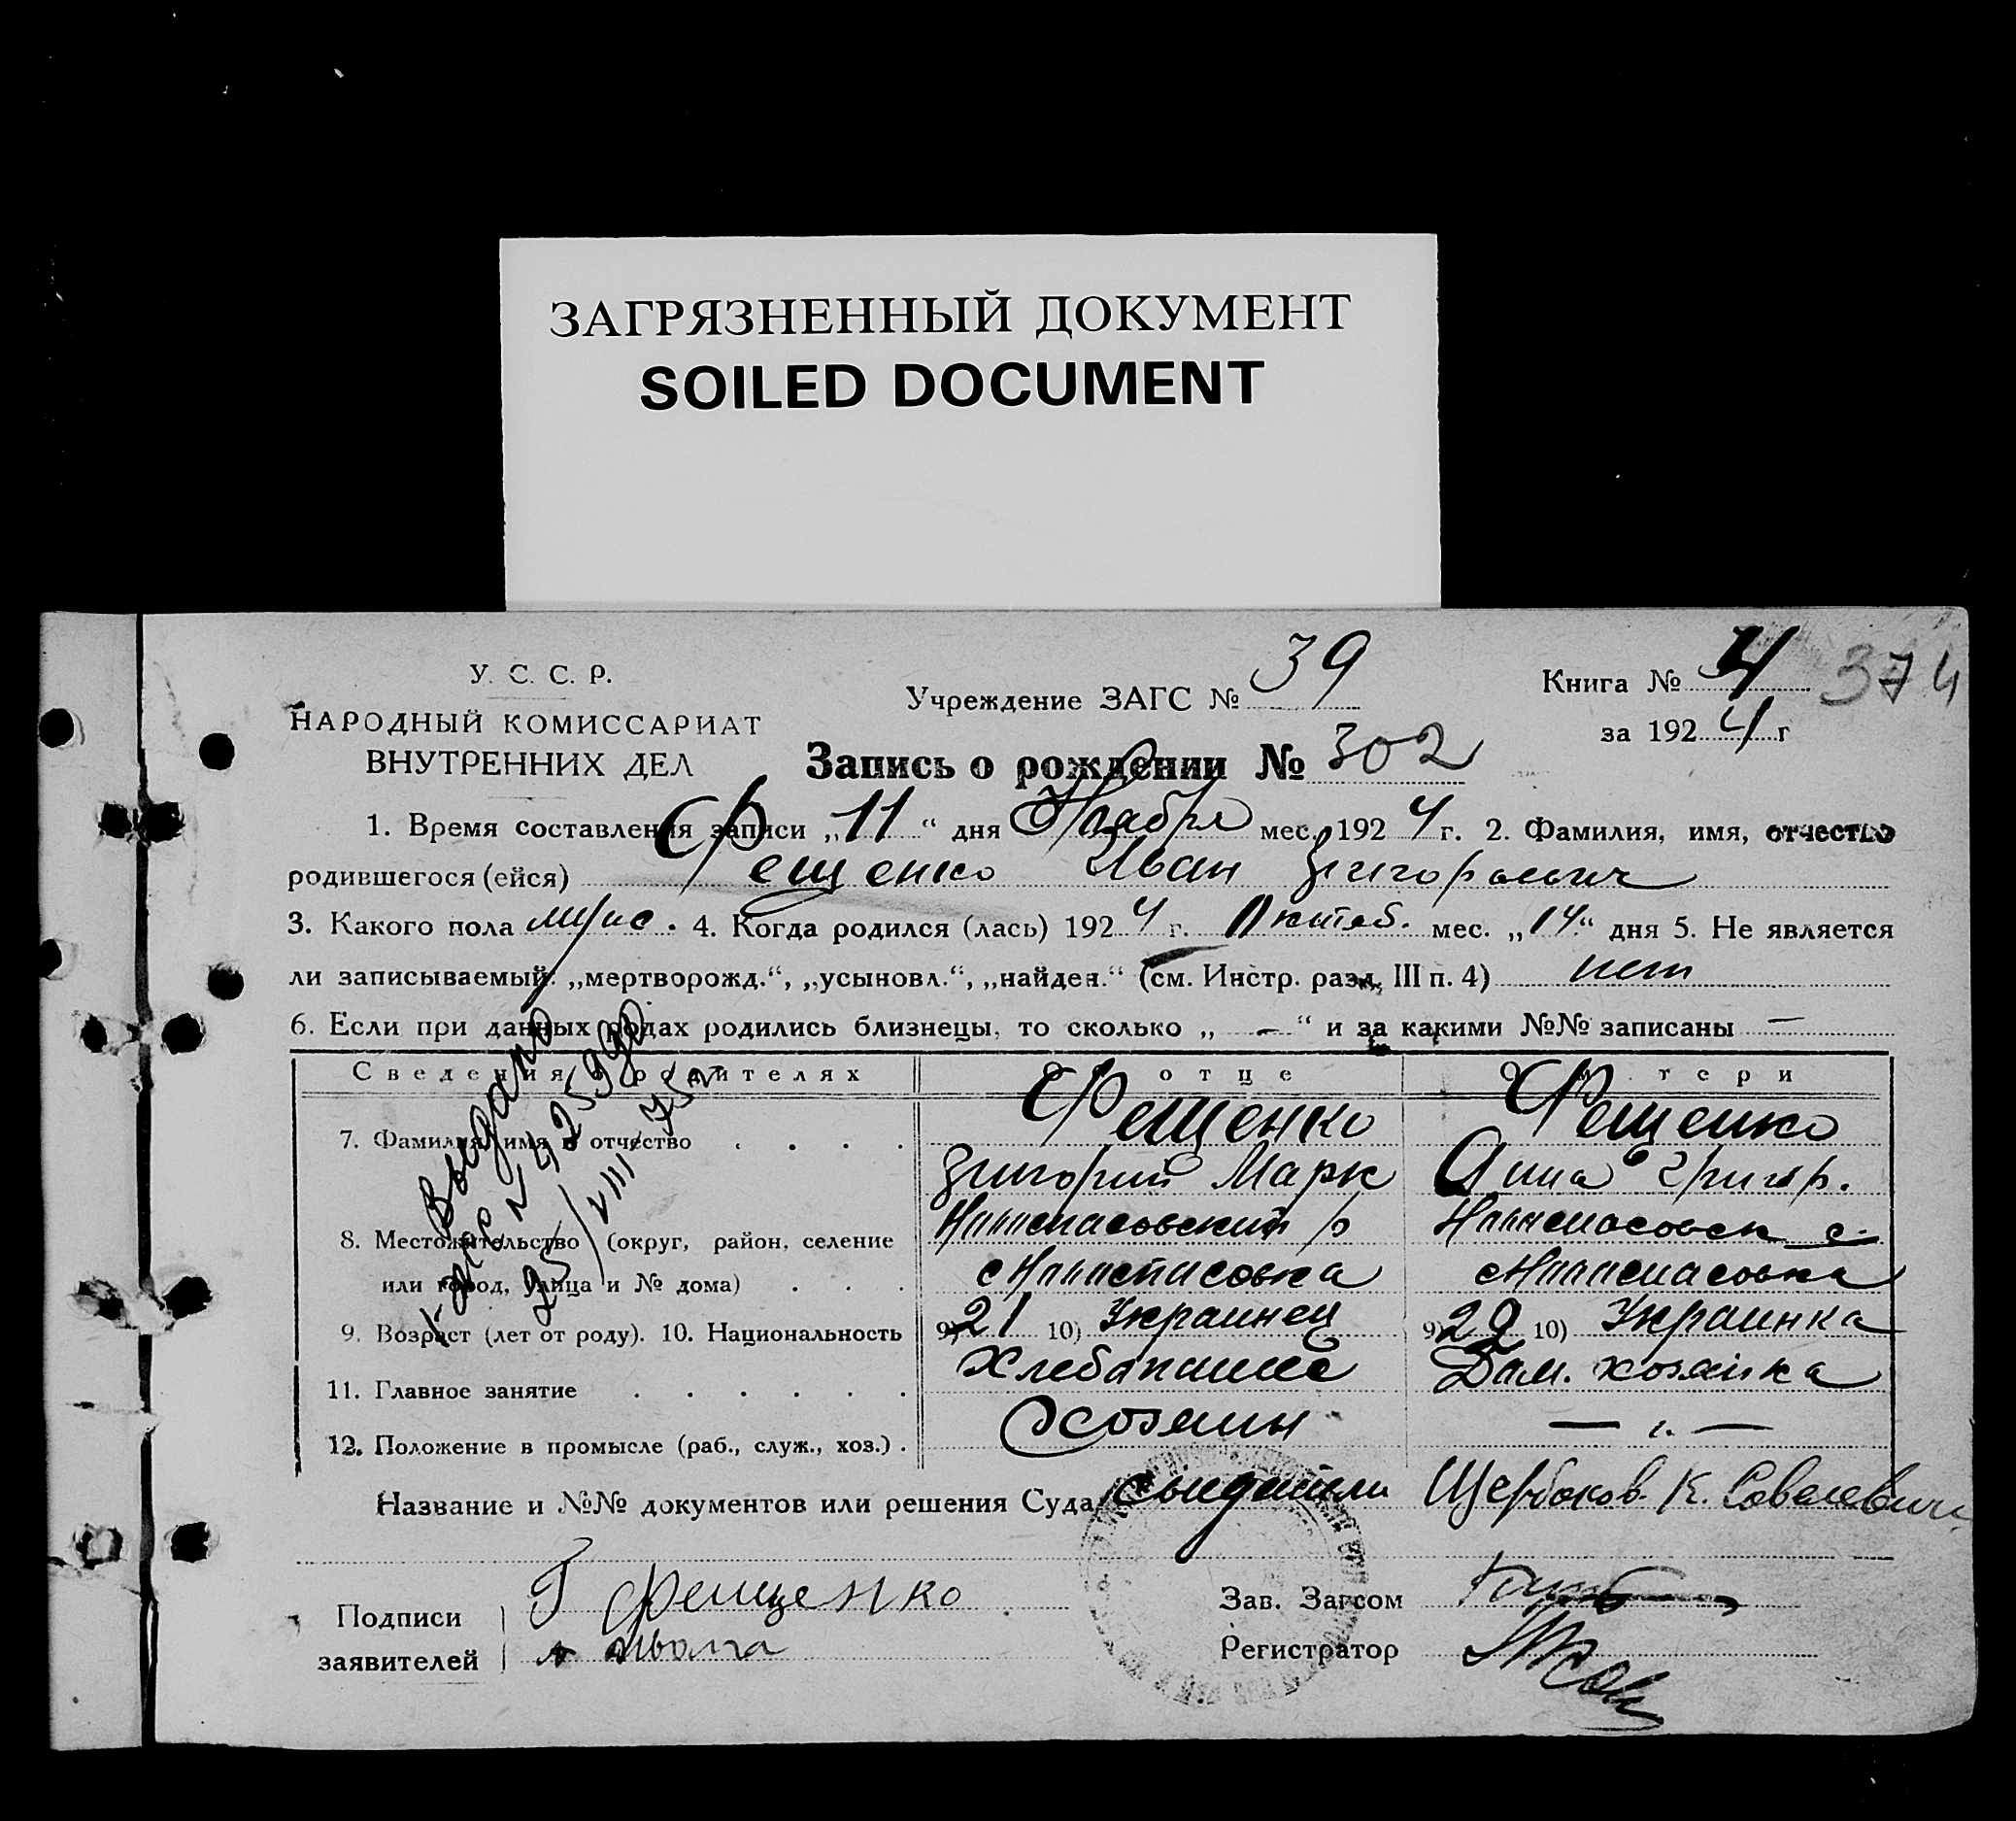 ЗАГРЯЗНЕННЫЙ ДОКУМЕНТ
SOILED DOCUMENT
У. С. С. Р.
НАРОДНЫЙ КОМИССАРИАТ
ВНУТРЕННИХ ДЕЛ
Учреждение ЗАГС № 39
Книга № 4 374
за 1924 г
Запись о рождении № 302
1. Время составления записи „11“ дня Ноября мес. 1924 г. 2. Фамилия, имя, отчество
родившегося (ейся) Фещенко Иван Григорьевич
3. Какого пола муж. 4. Когда родился (лась) 1924 г. Октяб. мес. „14“ дня 5. Не является
ли записываемый: „мертворожд.“, „усыновл.“, „найден.“ (см. Инстр. разд. III п. 4) нет
6. Если при данных родах родились близнецы, то сколько „ — “ и за какими №№ записаны —
Сведения о родителях О отце О матери
7. Фамилия, имя и отчество . . . . Фещенко Фещенко
Григорий Марк Анна Григор.
8. Местожительство (округ, район, селение Новоспасовский р Новоспасовск
или город, улица и № дома) . . . с Новоспасовка с Новоспасовка
9. Возраст (лет от роду). 10. Национальность 9) 21 10) Украинец 9) 29 10) Украинка
11. Главное занятие . . . . . . Хлебопашец Дом. хозяйка
12. Положение в промысле (раб., служ., хоз.) . Хозяин — „ —
Выдано
N 425990
25/VIII 75
Название и №№ документов или решения Суда Щербаков К.
Подписи
заявителей
Г Фещенко
Зав. Загсом
Регистратор